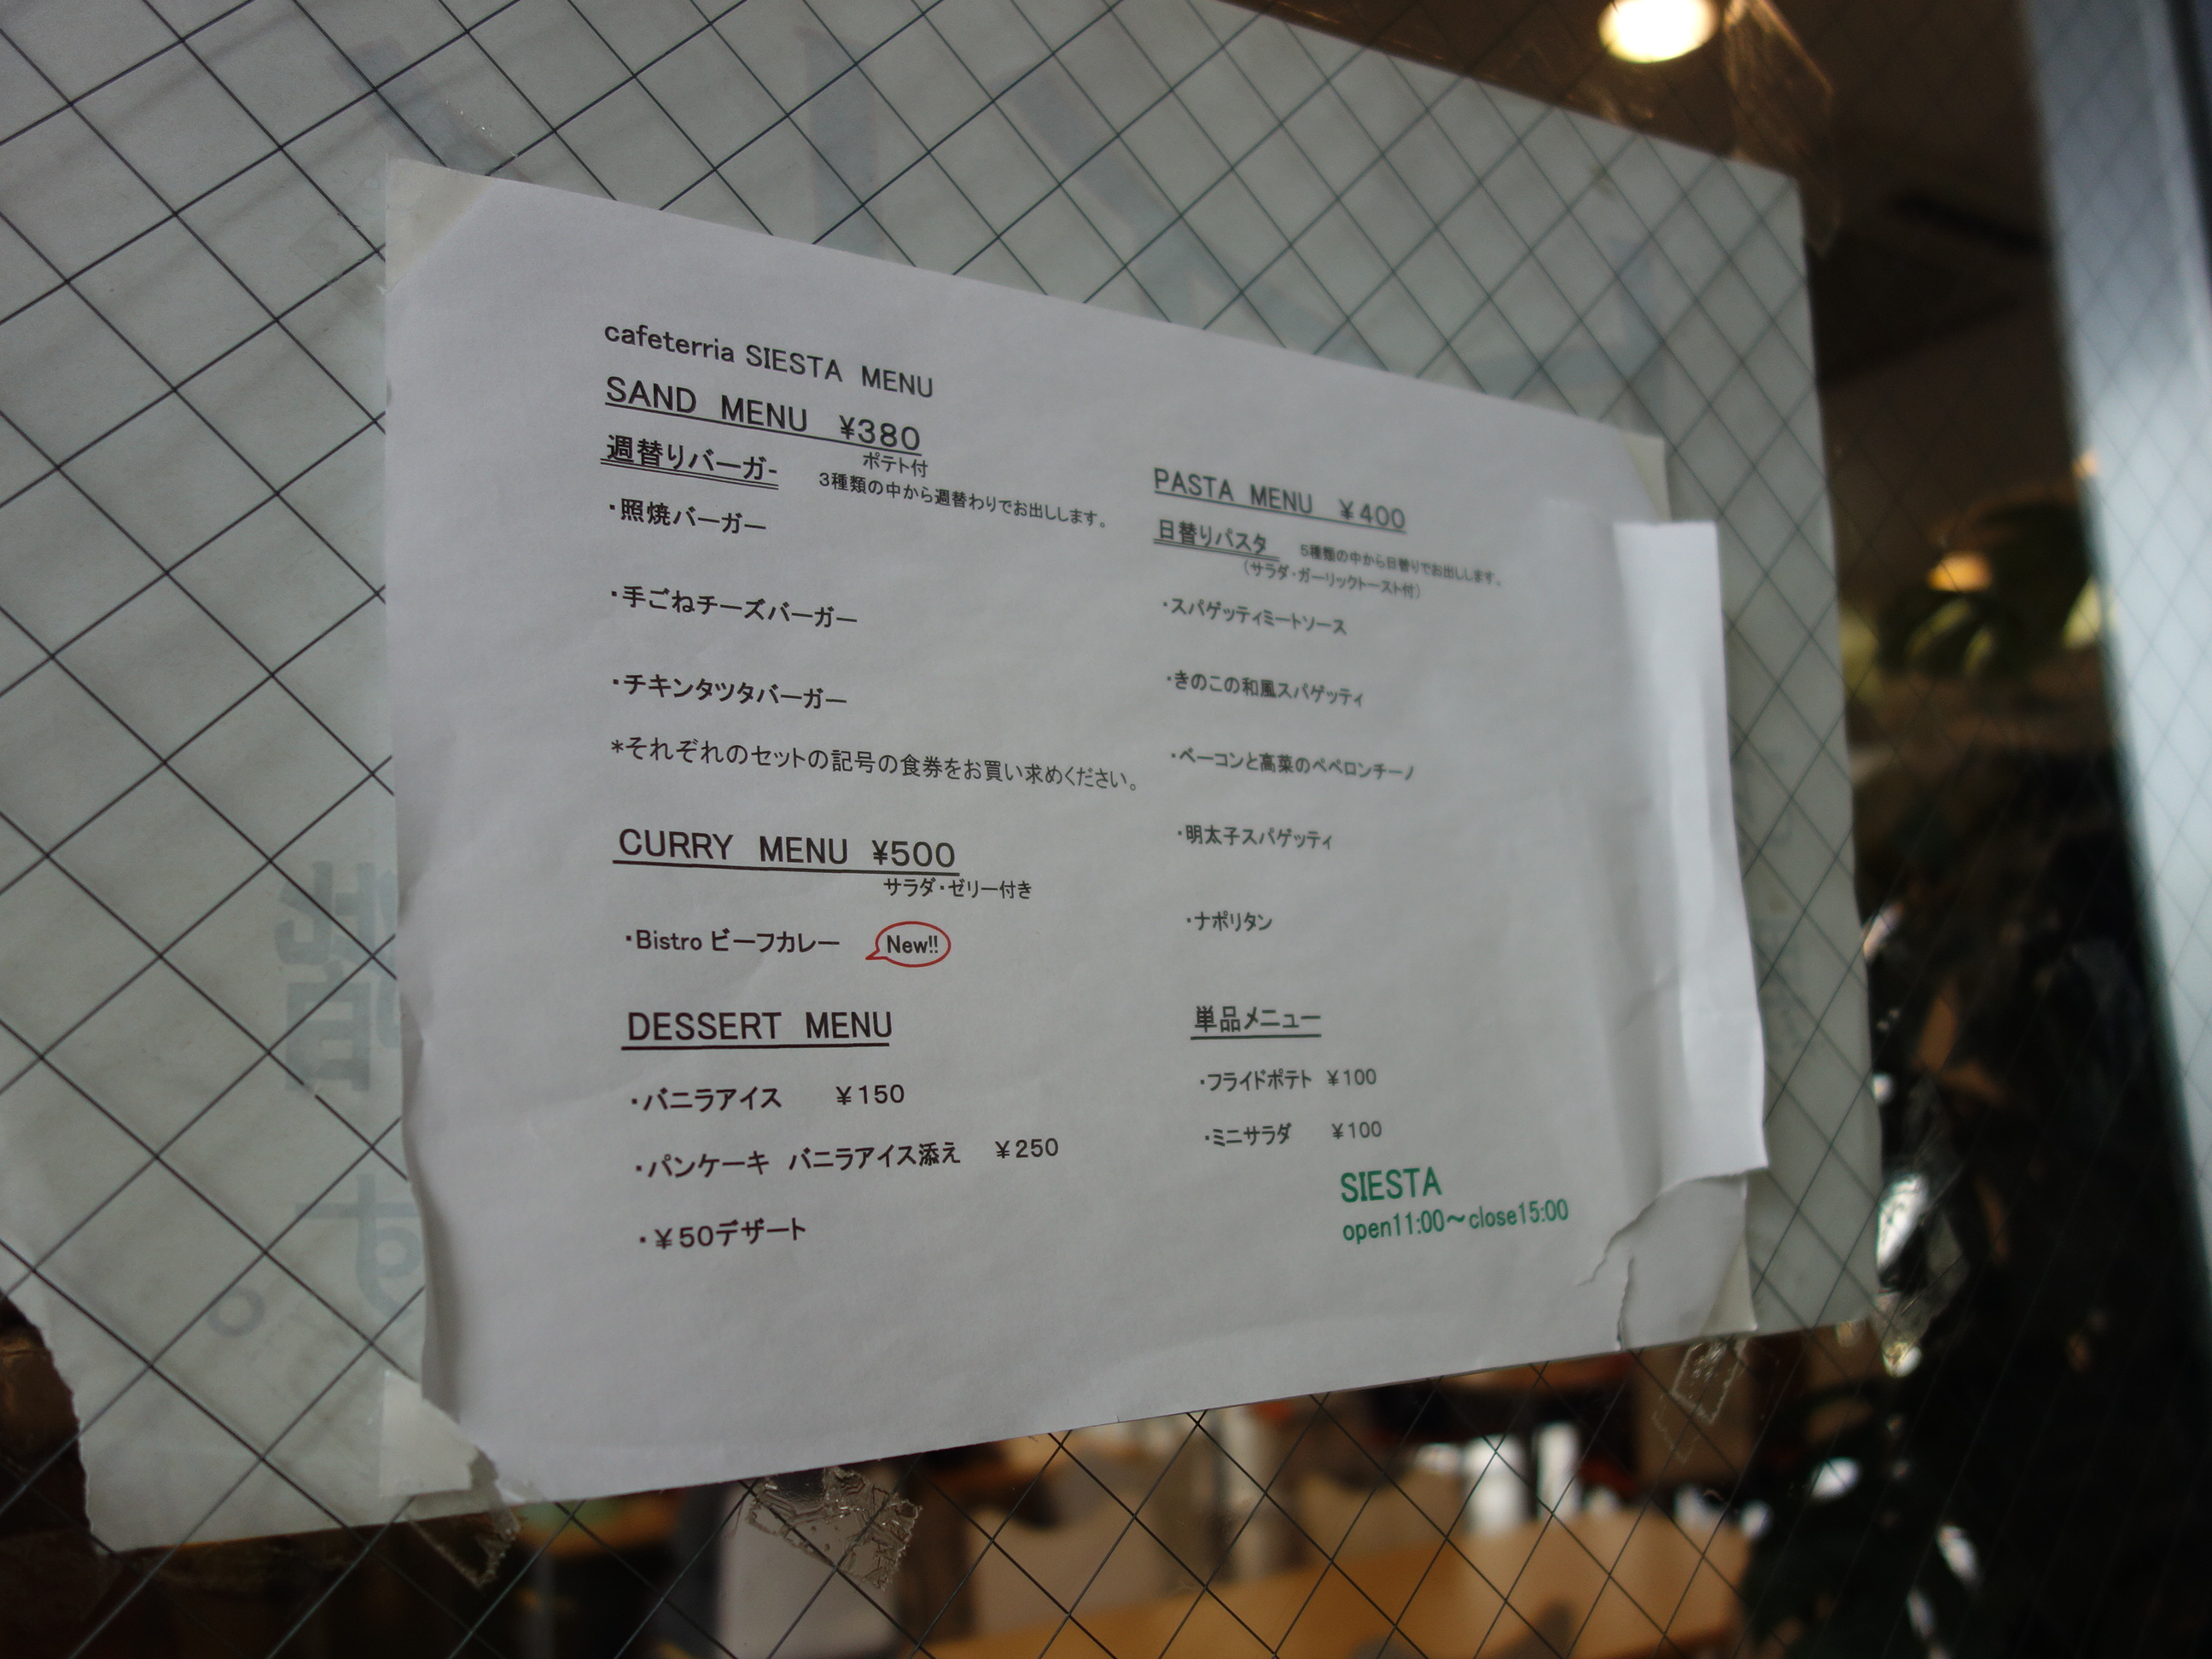 cafeterria SIESTA MENU
SAND MENU ¥380
ポテト付
週替りバーガー 3種類の中から週替わりでお出しします。
・照焼バーガー
・手ごねチーズバーガー
・チキンタツタバーガー
*それぞれのセットの記号の食券をお買い求めください。
CURRY MENU ¥500
サラダ・ゼリー付き
・Bistro ビーフカレー New!!
DESSERT MENU
・バニラアイス ¥150
・パンケーキ バニラアイス添え ¥250
・¥50デザート
PASTA MENU ¥400
日替りパスタ 5種類の中から日替りでお出しします。
(サラダ・ガーリックトースト付)
・スパゲッティミートソース
・きのこの和風スパゲッティ
・ベーコンと高菜のペペロンチーノ
・明太子スパゲッティ
・ナポリタン
単品メニュー
・フライドポテト ¥100
・ミニサラダ ¥100
SIESTA
open11:00～close15:00